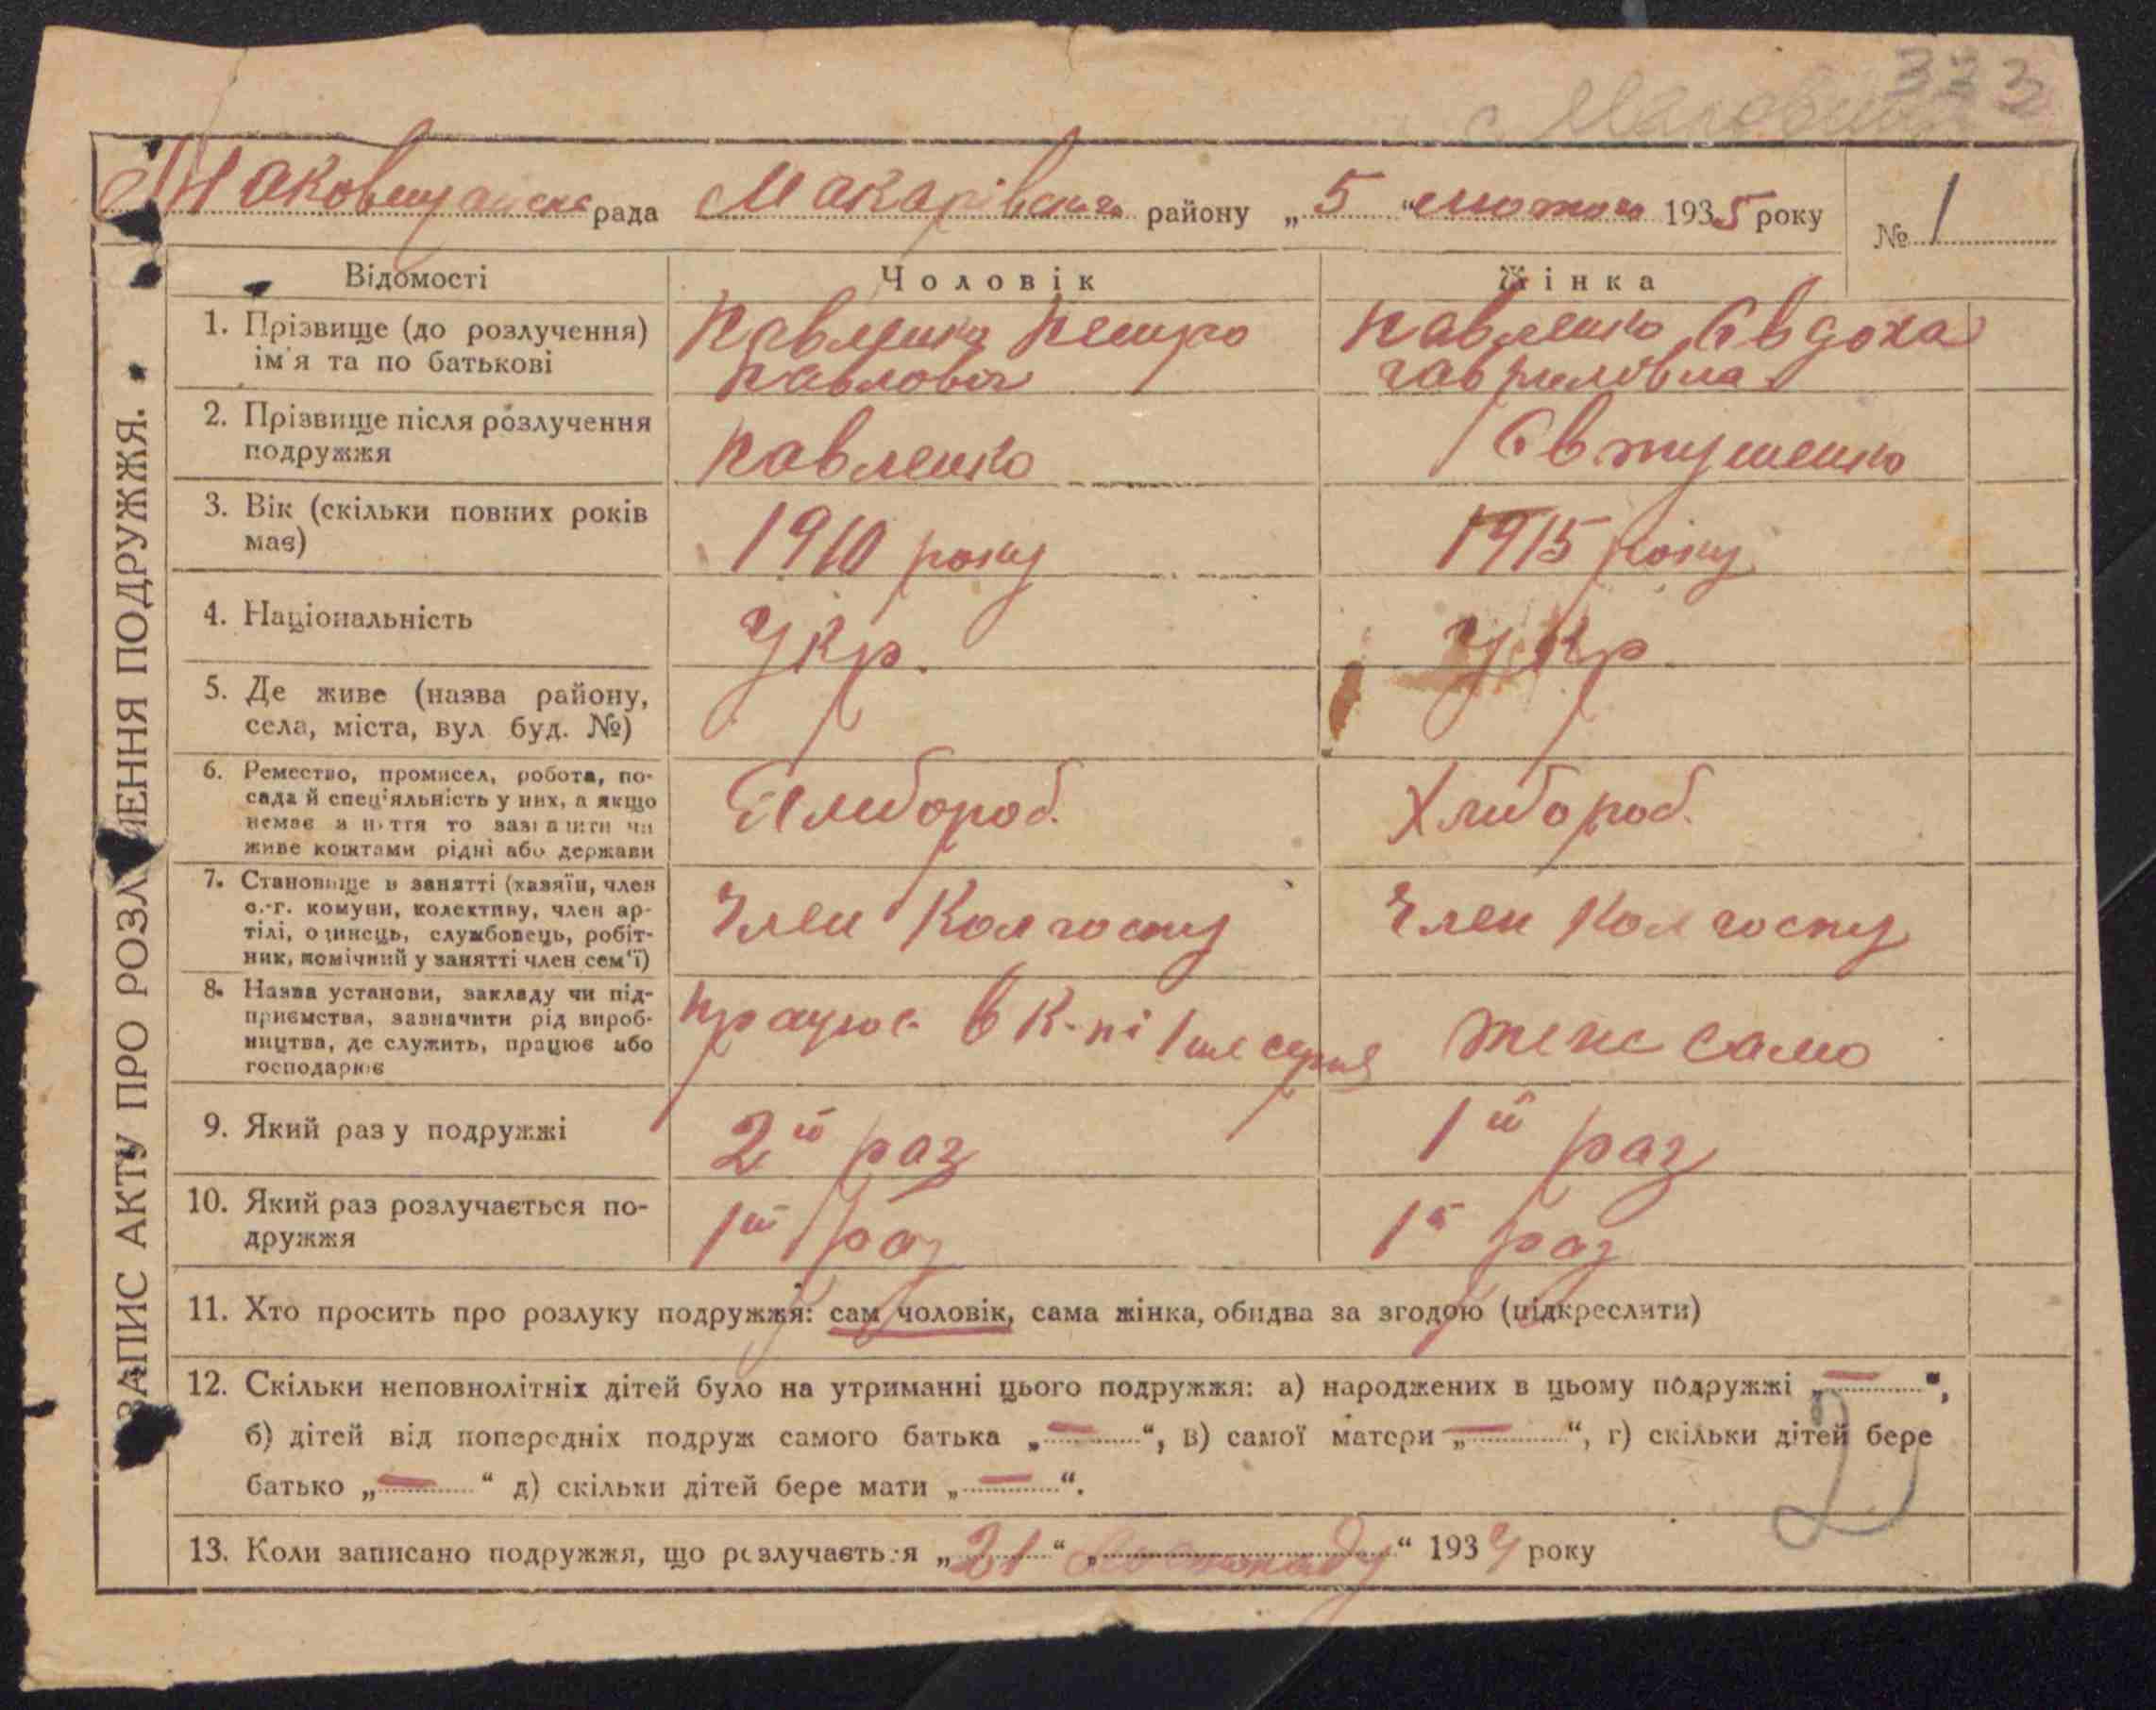 333
с.
Маковищанська рада Макарівського району „5“ лютого 1935 року
№ 1
ЗАПИС АКТУ ПРО РОЗЛУЧЕННЯ ПОДРУЖЖЯ.
Відомості Чоловік Жінка
1. Прізвище (до розлучення) Павленко Петро Павленко Євдоха
ім'я та по батькові Павлович Гаврилівна
2. Прізвище після розлучення
подружжя Павленко Євтушенко
3. Вік (скільки повних років
має) 1910 року 1915 року
4. Національність Укр. Укр
5. Де живе (назва району,
села, міста, вул буд. №)
6. Ремество, промисел, робота, по-
сада й спец'яльність у них, а якщо
немає заняття то зазначити чи Хлибороб. Хлибороб.
живе коштами рідні або держави
7. Становище в занятті (хазяїн, член
с.-г. комуни, колективу, член ар- Член Колгоспу Член Колгоспу
тілі, одинець, службовець, робіт-
ник, помічний у занятті член сем'ї)
8. Назва установи, закладу чи під-
приємства, зазначити рід вироб- працює в К-пі теж само
ництва, де служить, працює або
господарює
9. Який раз у подружжі 2й раз 1й раз
10. Який раз розлучається по-
дружжя 1й раз 1й раз
11. Хто просить про розлуку подружжя: сам чоловік, сама жінка, обидва за згодою (підкреслити)
12. Скільки неповнолітніх дітей було на утриманні цього подружжя: а) народжених в цьому подружжі „—“,
б) дітей від попередніх подруж самого батька „—“, в) самої матери „—“, г) скільки дітей бере
батько „—“ д) скільки дітей бере мати „—“.
2
13. Коли записано подружжя, що розлучається „21“ „листопаду“ 1934 року